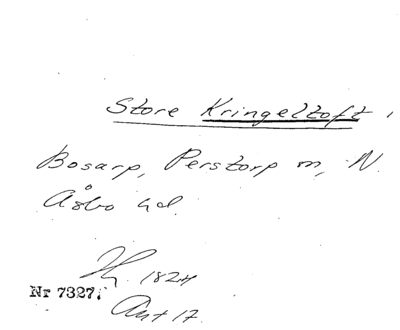 Store Kringeltoft,
Bosarp, Perstorp m, N.
Åsbo hd.
1824
Nr 7327.
Ant 17.